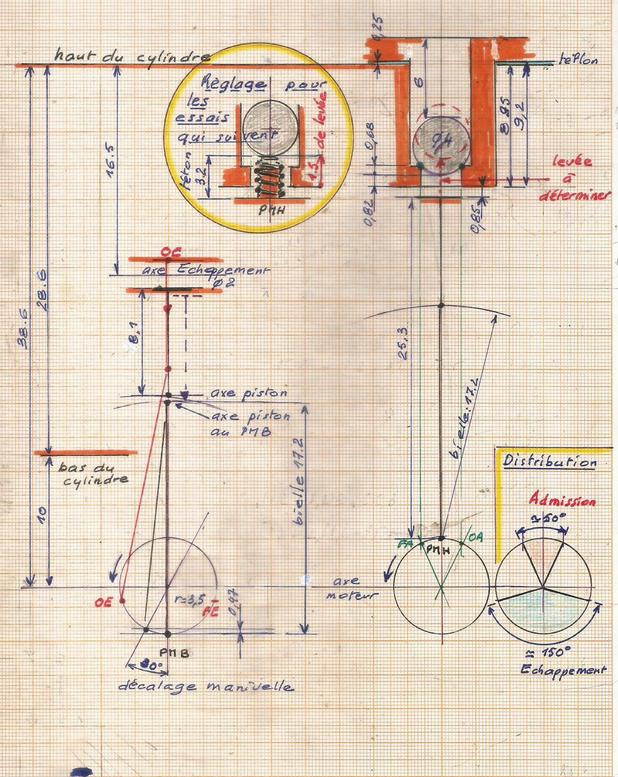 haut du cylindre
0,25
teflon
Réglage pour
les
essais
qui suivent
téton
3.2
1.5
de levée
PMH
6
Ø4
0,68
0,82
8.95
9,2
0,85
levée
à
déterminer
16.5
28.6
38.6
OE
axe Echappement
Ø2
8,1
axe piston
axe piston
au PMB
bielle 17.2
25,3
bielle: 17.2
bas du
cylindre
10
Distribution
Admission
≃ 50°
FA
PMH
OA
axe
moteur
OE
r=3,5
FE
0,47
PMB
30°
décalage manivelle
≃ 150°
Echappement